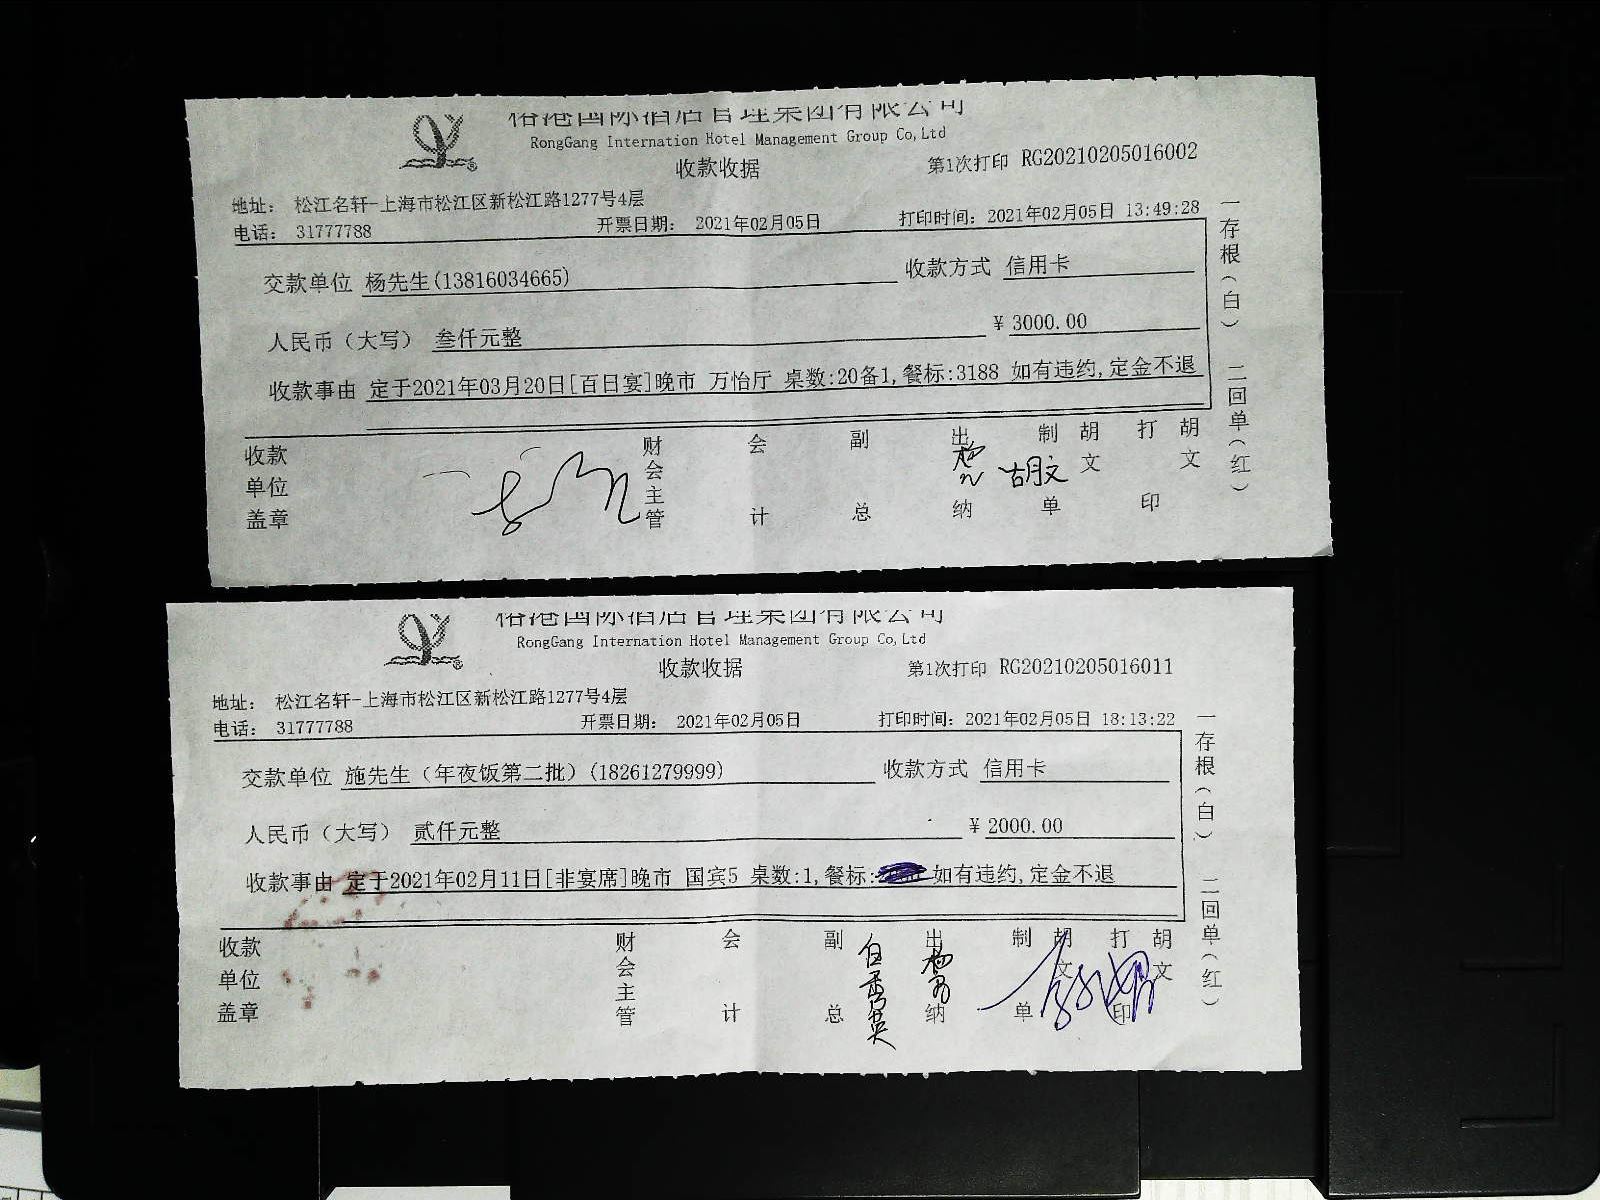 裕港国际酒店管理集团有限公司
RongGang Internation Hotel Management Group Co,Ltd
收款收据
第1次打印 RG20210205016002
地址： 松江名轩-上海市松江区新松江路1277号4层
电话： 31777788 开票日期： 2021年02月05日 打印时间：2021年02月05日 13:49:28
交款单位 杨先生(13816034665) 收款方式 信用卡
人民币（大写） 叁仟元整 ¥ 3000.00
收款事由 定于2021年03月20日[百日宴]晚市 万怡厅 桌数:20备1,餐标:3188 如有违约,定金不退
收款单位盖章 财会主管 会计 副总 出纳 制单 胡文 打印 胡文
胡文
一存根（白） 二回单（红）
裕港国际酒店管理集团有限公司
RongGang Internation Hotel Management Group Co,Ltd
收款收据
第1次打印 RG20210205016011
地址： 松江名轩-上海市松江区新松江路1277号4层
电话： 31777788 开票日期： 2021年02月05日 打印时间：2021年02月05日 18:13:22
交款单位 施先生（年夜饭第二批）(18261279999) 收款方式 信用卡
人民币（大写） 贰仟元整 ¥ 2000.00
收款事由 定于2021年02月11日[非宴席]晚市 国宾5 桌数:1,餐标: 如有违约,定金不退
收款单位盖章 财会主管 会计 副总 出纳 制单 胡文 打印 胡文
一存根（白） 二回单（红）